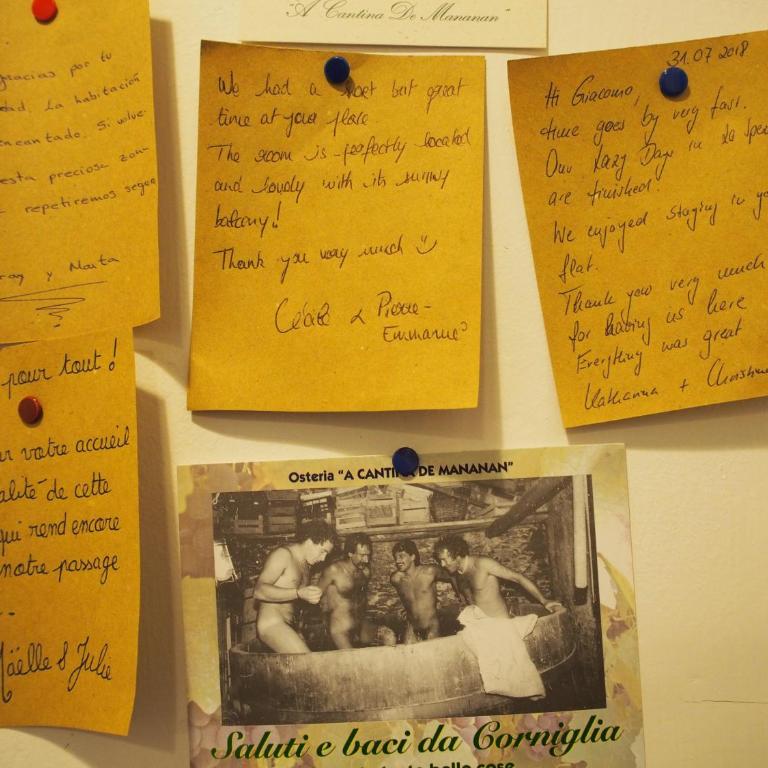 "A Cantina De Mananan"
gracias por tu
la habitación
encantado. Si volve-
esta preciosa zon-
repetiremos segu
y Marta
We had a short but great
time at your place
The room is perfectly located
and lovely with its sunny
balcony!
Thank you very much
Cécile & Pierre-
Emmanuel
31.07 2018
Hi Giacomo,
time goes by very fast.
Our Lazy Days in La Spe
are finished.
We enjoyed staying in yo
flat.
Thank you very much
for having us here
Everything was great
Katharina + Christin
pour tout!
votre accueil
alité de cette
qui rend encore
notre passage
Maëlle & Julie
Osteria "A CANTINA DE MANANAN"
Saluti e baci da Corniglia
belle cose